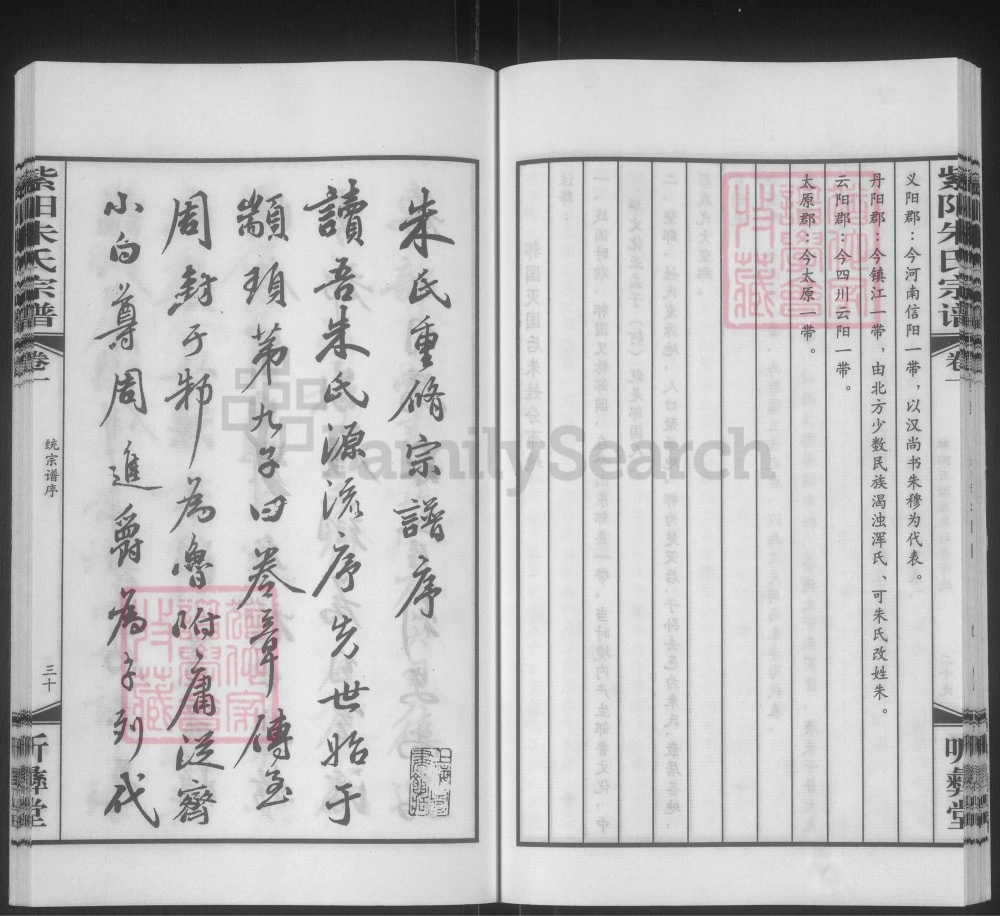 义阳郡：今河南信阳一带，以汉尚书朱穆为代表。
丹阳郡：今镇江一带，由北方少数民族渴浊浑氏、可朱氏改姓朱。
云阳郡：今四川云阳一带。
太原郡：今太原一带。
紫阳朱氏宗谱
卷一
听彝堂
朱氏重脩宗譜序
讀吾朱氏源流序先世始于
颛顼第九子曰卷章傳至
周封于邾為魯附庸從齊
小白尊周進爵為子列代
紫阳朱氏宗谱
卷一
统宗谱序
三十
听彝堂
FamilySearch